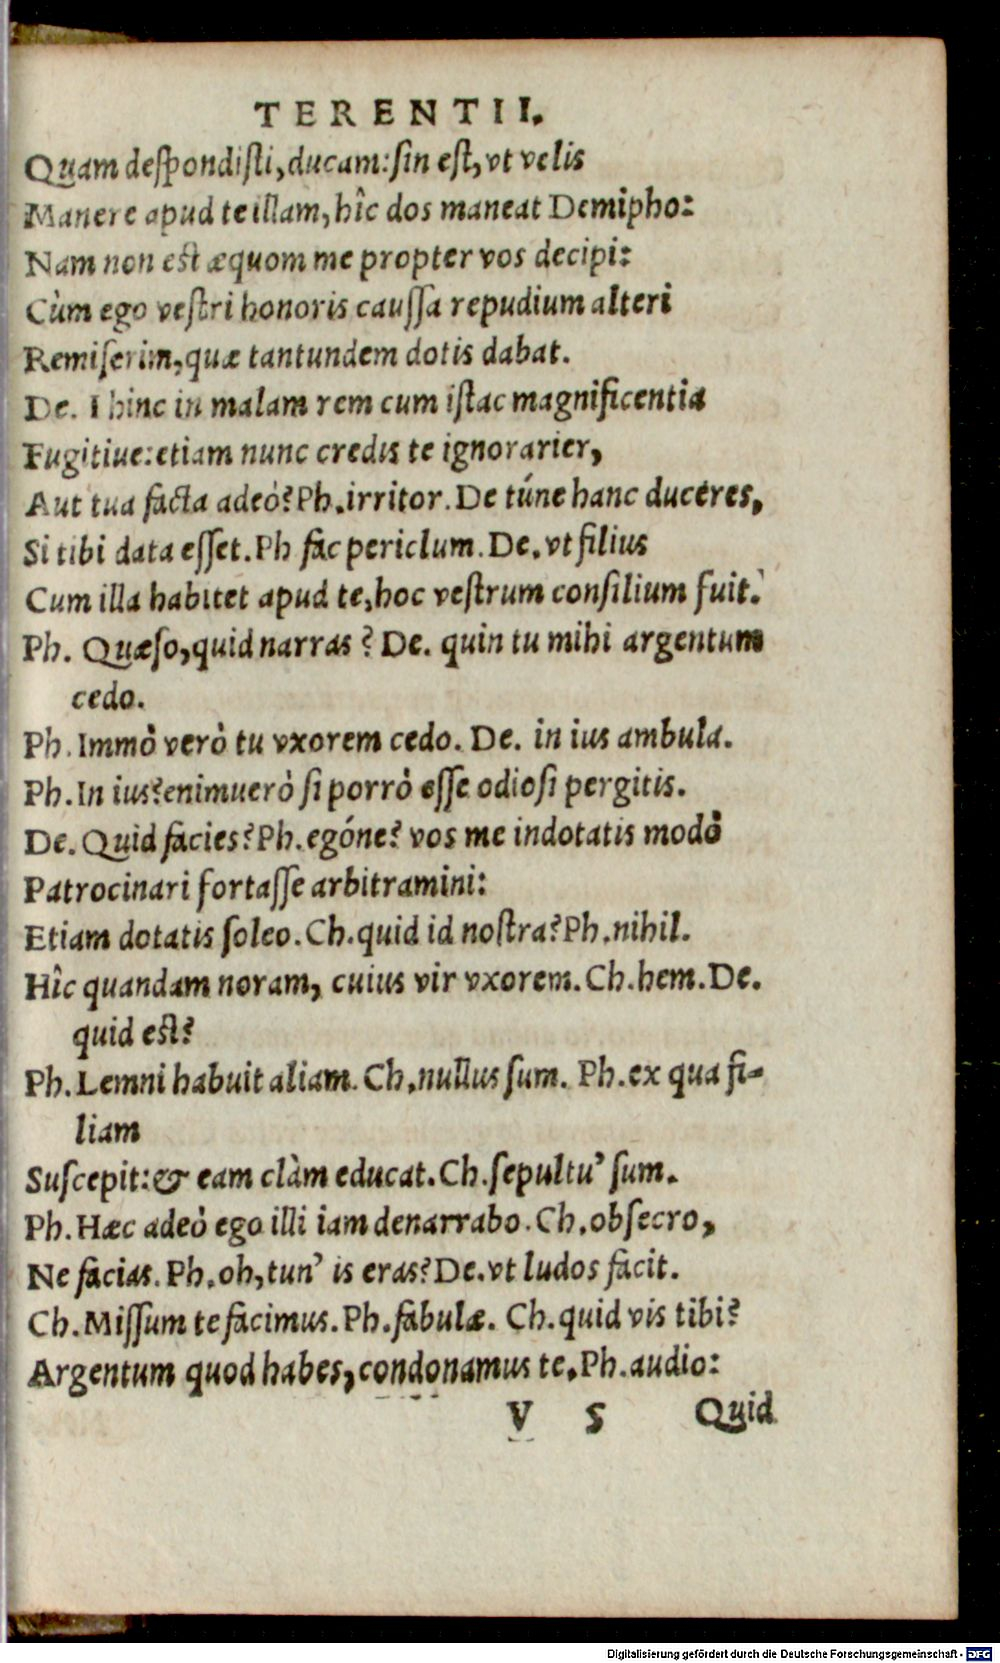 TERENTII.
Quam despondisti, ducam: sin est, vt velis
Manere apud te illam, hîc dos maneat Demipho:
Nam non est æquom me propter vos decipi:
Cùm ego vestri honoris caussa repudium alteri
Remiserim, quæ tantundem dotis dabat.
De. I hinc in malam rem cum istac magnificentia
Fugitiue: etiam nunc credis te ignorarier,
Aut tua facta adeò? Ph. irritor. De túne hanc duceres,
Si tibi data esset. Ph fac periclum. De. vt filius
Cum illa habitet apud te, hoc vestrum consilium fuit.
Ph. Quæso, quid narras? De. quin tu mihi argentum
cedo.
Ph. Immò verò tu vxorem cedo. De. in ius ambula.
Ph. In ius? enimuerò si porrò esse odiosi pergitis.
De. Quid facies? Ph. egóne? vos me indotatis modò
Patrocinari fortasse arbitramini:
Etiam dotatis soleo. Ch. quid id nostra? Ph. nihil.
Hîc quandam noram, cuius vir vxorem. Ch. hem. De.
quid est?
Ph. Lemni habuit aliam. Ch. nullus sum. Ph. ex qua fi-
liam
Suscepit: & eam clàm educat. Ch. sepultu' sum.
Ph. Hæc adeò ego illi iam denarrabo. Ch. obsecro,
Ne facias. Ph. oh, tun' is eras? De. vt ludos facit.
Ch. Missum te facimus. Ph. fabulæ. Ch. quid vis tibi?
Argentum quod habes, condonamus te. Ph. audio:
V S Quid
Digitalisierung gefördert durch die Deutsche Forschungsgemeinschaft - DFG